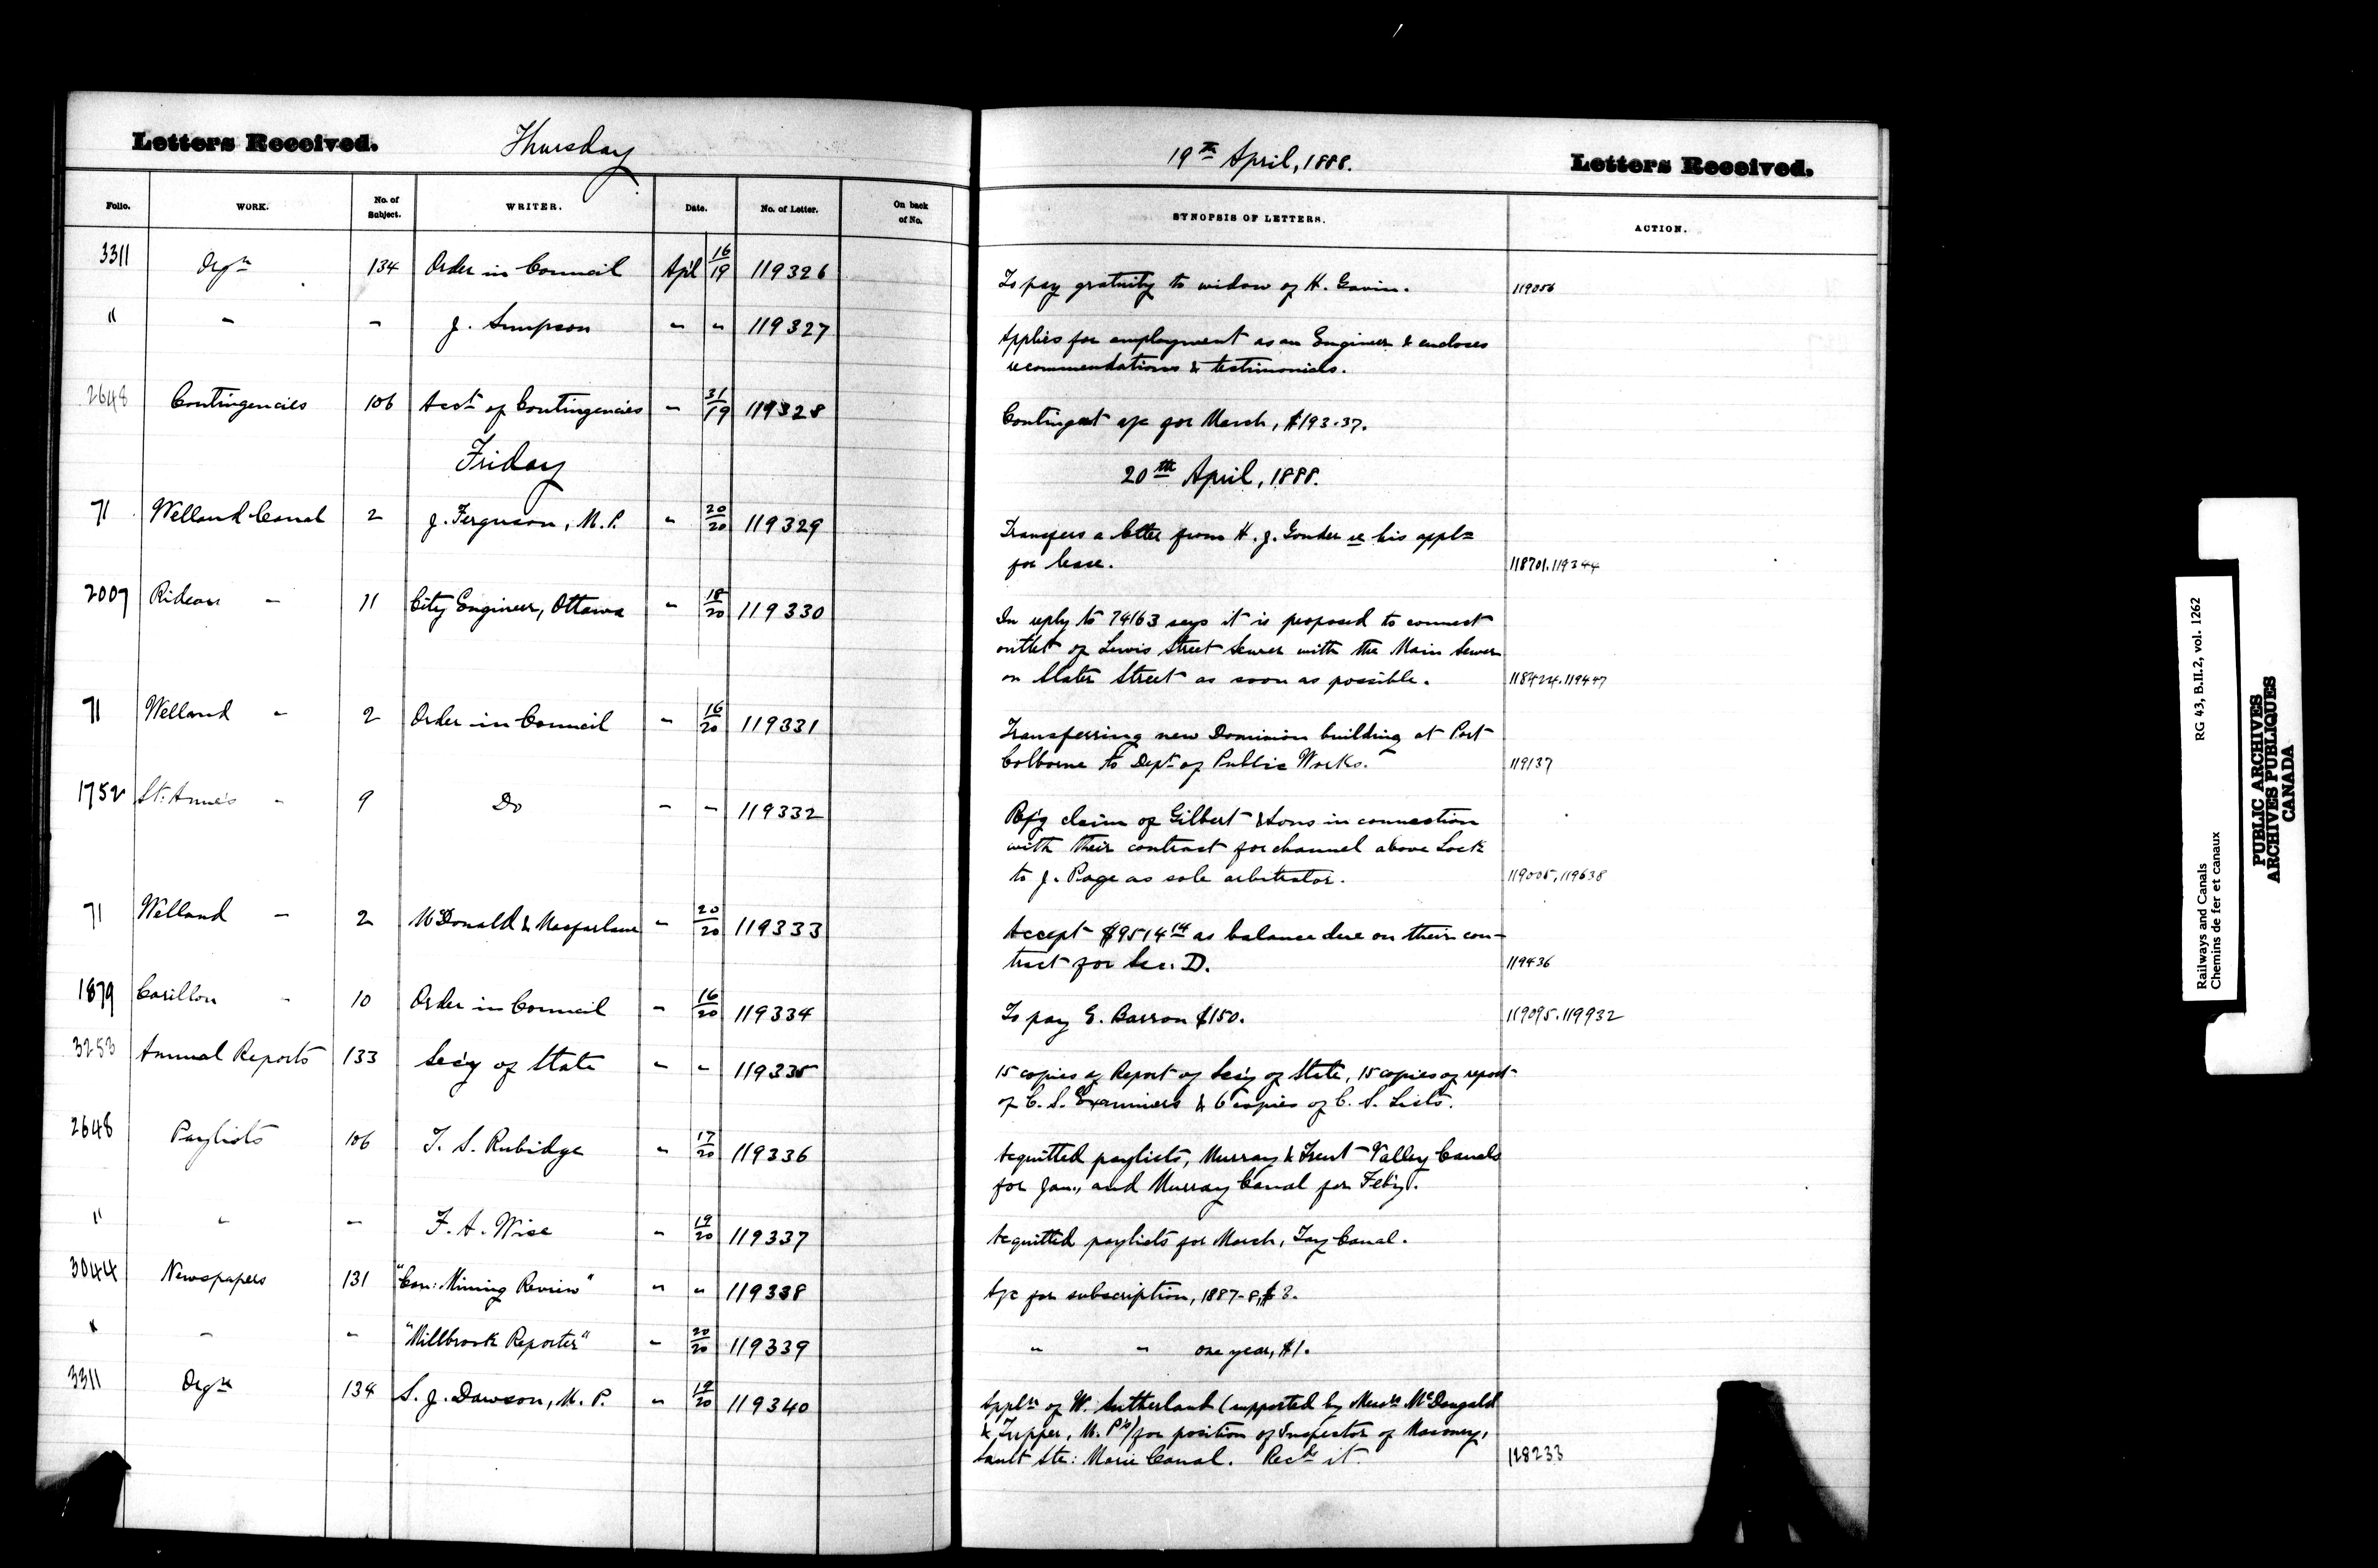 Letters Received.
Thursday
19th April, 1888.
Letters Received.
Folio. WORK. No. of Subject. WRITER. Date. No. of Letter. On back of No. SYNOPSIS OF LETTERS. ACTION.
3311 Orgn 134 Order in Council Apl 16/19 119326
To pay gratuity to widow of H. Gavin. 119056
" " " J. Simpson " " 119327
Applies for employment as an Engineer & encloses
recommendations & testimonials.
2648 Contingencies 106 Acct of Contingencies " 31/19 119328
Contingent a/c for March, $193.37.
Friday
20th April, 1888.
71 Welland Canal 2 J. Ferguson, M.P. " 20/20 119329
Transfers a letter from H. J. Gonder re his appln
for lease. 118701.119344
2007 Rideau " 11 City Engineer, Ottawa " 18/20 119330
In reply to 74163 says it is proposed to connect
outlet of Lewis Street Sewer with the Main Sewer
on Slater Street as soon as possible.
71 Welland " 2 Order in Council " 16/20 119331
Transferring new Dominion building at Port
Colborne to Dept of Public Works. 119137
1752 St. Anne's " 9 Do " " 119332
Refg claim of Gilbert & Sons in connection
with their contract for channel above Lock
to J. Page as sole arbitrator. 119005, 119638
71 Welland " 2 McDonald & Macfarlane " 20/20 119333
Accept $9514 14 as balance due on their con-
tract for Sec. D. 119436
1879 Carillon " 10 Order in Council " 16/20 119334
To pay E. Barron $150. 119095.119932
3253 Annual Reports 133 Sec'y of State " " 119335
15 copies of Report of Sec'y of State, 15 copies of report
of C. S. Examiners & 6 copies of C. S. Lists.
2648 Paylists 106 T. S. Rubidge " 17/20 119336
Acquitted paylists, Murray & Trent Valley Canals
for Jan., and Murray Canal for Feb'y.
" " " F. A. Wise " 19/20 119337
Acquitted paylists for March, Tay Canal.
3044 Newspapers 131 "Can: Mining Review" " " 119338
A/c for subscription, 1887-8, $3.
" " " "Millbrook Reporter" " 20/20 119339
" " one year, $1.
3311 Orgn 134 S. J. Dawson, M.P. " 19/20 119340
Appln of W. Sutherland (supported by Messrs McDougald
& Tupper, M.P's) for position of Inspector of Masonry,
Sault Ste: Marie Canal. Recds it 128233
Railways and Canals RG 43, B.II.2, vol. 1262
Chemins de fer et canaux
PUBLIC ARCHIVES
ARCHIVES PUBLIQUES
CANADA